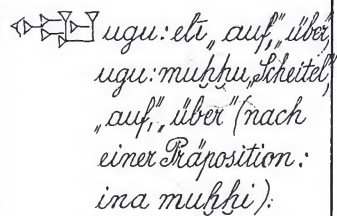 ugu: eli „auf", „über",
ugu: muḫḫu „Scheitel",
„auf", „über" (nach
einer Präposition:
ina muḫḫi).